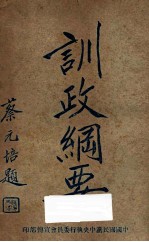 訓政綱要
蔡元培題
中國國民黨中央執行委員會宣傳部印